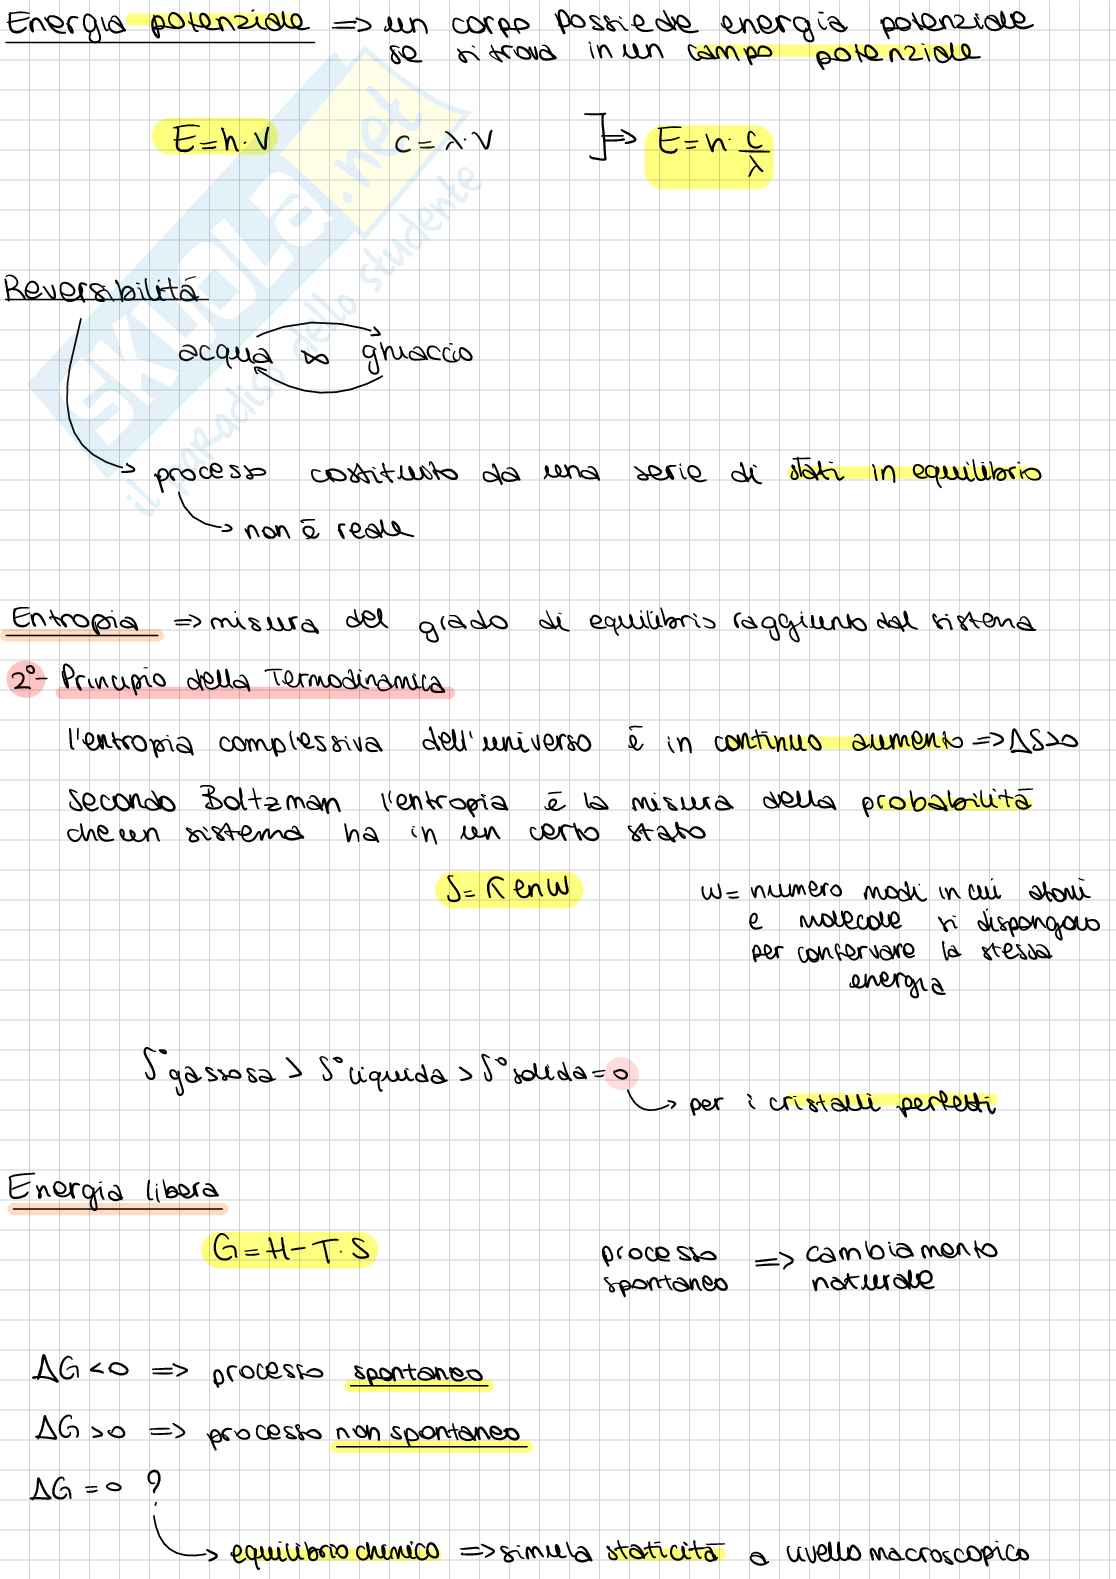 Energia potenziale => un corpo possiede energia potenziale
se si trova in un campo potenziale
E=h·ν c=λ·ν ]=> E=h·c/λ
Reversibilità
acqua ∞ ghiaccio
processo costituito da una serie di stati in equilibrio
non è reale
Entropia => misura del grado di equilibrio raggiunto dal sistema
2°- Principio della Termodinamica
l'entropia complessiva dell'universo è in continuo aumento => ΔS>0
secondo Boltzman l'entropia è la misura della probabilità
che un sistema ha in un certo stato
S=K ln W
W= numero modi in cui atomi
e molecole si dispongono
per conservare la stessa
energia
S°gassosa > S°liquida > S°solida=0
per i cristalli perfetti
Energia libera
G=H-T·S
processo spontaneo => cambiamento naturale
ΔG<0 => processo spontaneo
ΔG>0 => processo non spontaneo
ΔG=0 ?
equilibrio chimico => simula staticità a livello macroscopico
SKUOLA.net
il paradiso dello studente